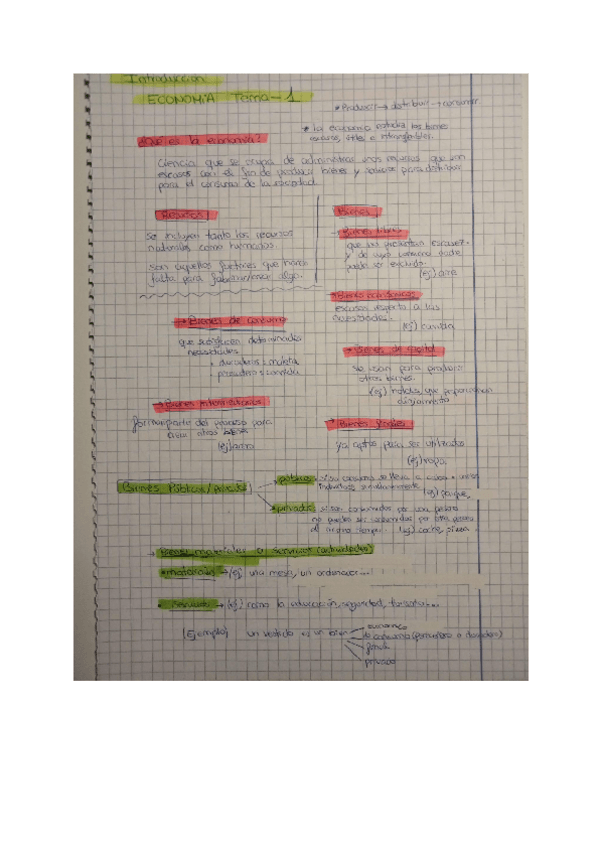 Introducción
ECONOMÍA Tema-1
* Producir → distribuir → consumir
* La economía estudia los bienes
escasos, útiles e intangibles.
¿Qué es la economía?
Ciencia que se ocupa de administrar unos recursos que son
escasos con el fin de producir bienes y servicios para distribuirlos
para el consumo de la sociedad.
Recursos
Se incluyen tanto los recursos
naturales como humanos.
Son aquellos factores que hacen
falta para fabricar/hacer algo.
Bienes
→ Bienes libres
que no presentan escasez
y de cuyo consumo nadie
puede ser excluido.
(ej) aire
→ Bienes económicos
escasos respecto a las
necesidades.
(ej) comida
→ Bienes de consumo
que satisfacen determinadas
necesidades.
• duraderos: maleta
• perecederos: comida
→ Bienes de capital
Se usan para producir
otros bienes.
(ej)
→ Bienes intermedios
forman parte del proceso para
crear otros
(ej)
→ Bienes finales
ya aptos para ser utilizados
(ej) ropa.
Bienes Públicos/privados
→ públicos: si su consumo se lleva a cabo
(ej) parque,
→ privados: si son consumidos por una persona
no pueden ser consumidos por otra persona
al mismo tiempo. (ej) coche,
→ Bienes materiales o Servicios (actividades)
• materiales → (ej) una mesa, un ordenador...
• Servicios → (ej) como la educación, seguridad,
(Ejemplo) un vestido es un bien
económico
de consumo
final
privado